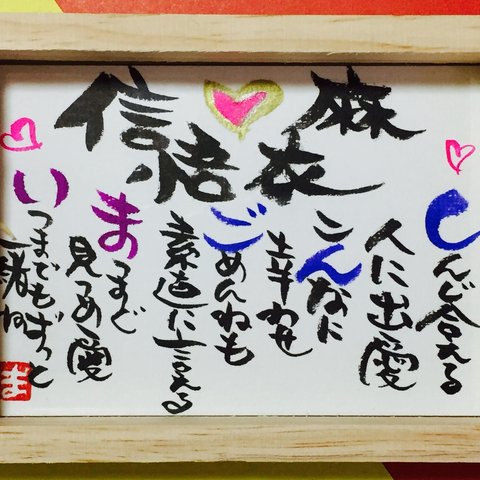 信悟
麻衣
しんじ合える
人に出愛
こんなに
幸わせ
ごめんねも
素直に言える
まっすぐ
見つめ愛
いつまでもずっと
一緒ね
ま